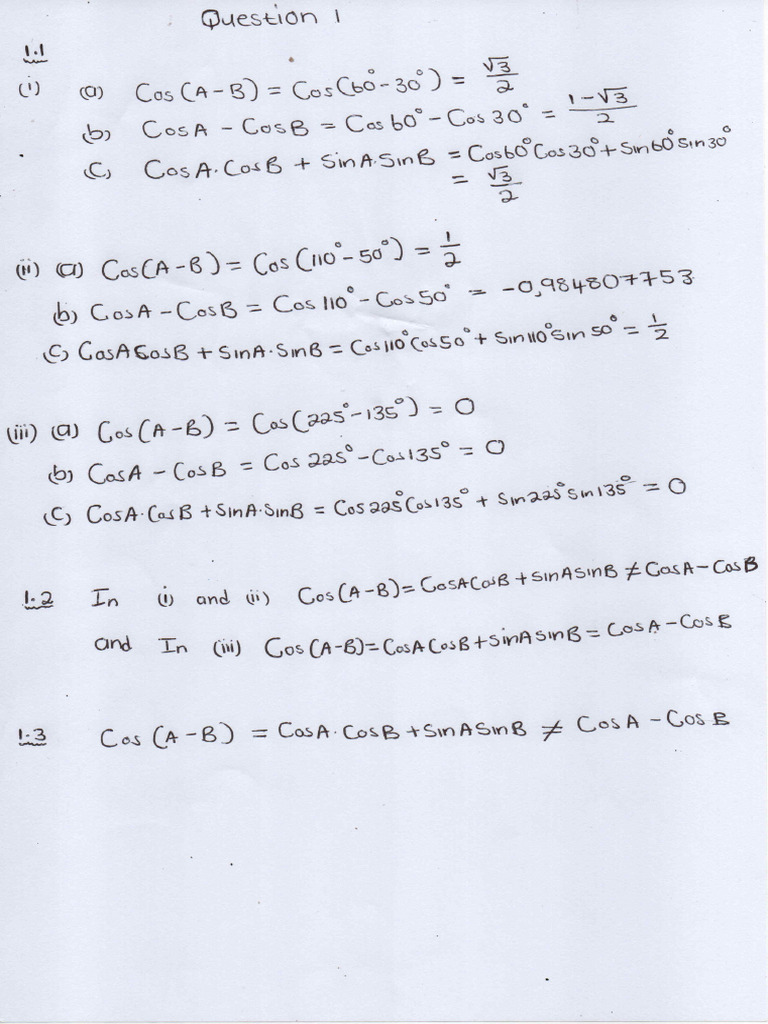 Question 1
1.1
(i) (a) Cos(A-B) = Cos(60°-30°) = √3/2
(b) CosA - CosB = Cos60° - Cos30° = 1-√3/2
(c) CosA.CosB + SinA.SinB = Cos60°Cos30° + Sin60°Sin30°
= √3/2
(ii) (a) Cos(A-B) = Cos(110°-50°) = 1/2
(b) CosA - CosB = Cos110° - Cos50° = -0,984807753
(c) CosACosB + SinA.SinB = Cos110°Cos50° + Sin110°Sin50° = 1/2
(iii) (a) Cos(A-B) = Cos(225°-135°) = 0
(b) CosA - CosB = Cos225° - Cos135° = 0
(c) CosA.CosB + SinA.SinB = Cos225°Cos135° + Sin225°Sin135° = 0
1.2 In (i) and (ii) Cos(A-B) = CosACosB + SinASinB ≠ CosA - CosB
and In (iii) Cos(A-B) = CosACosB + SinASinB = CosA - CosB
1.3 Cos(A-B) = CosA.CosB + SinASinB ≠ CosA - CosB